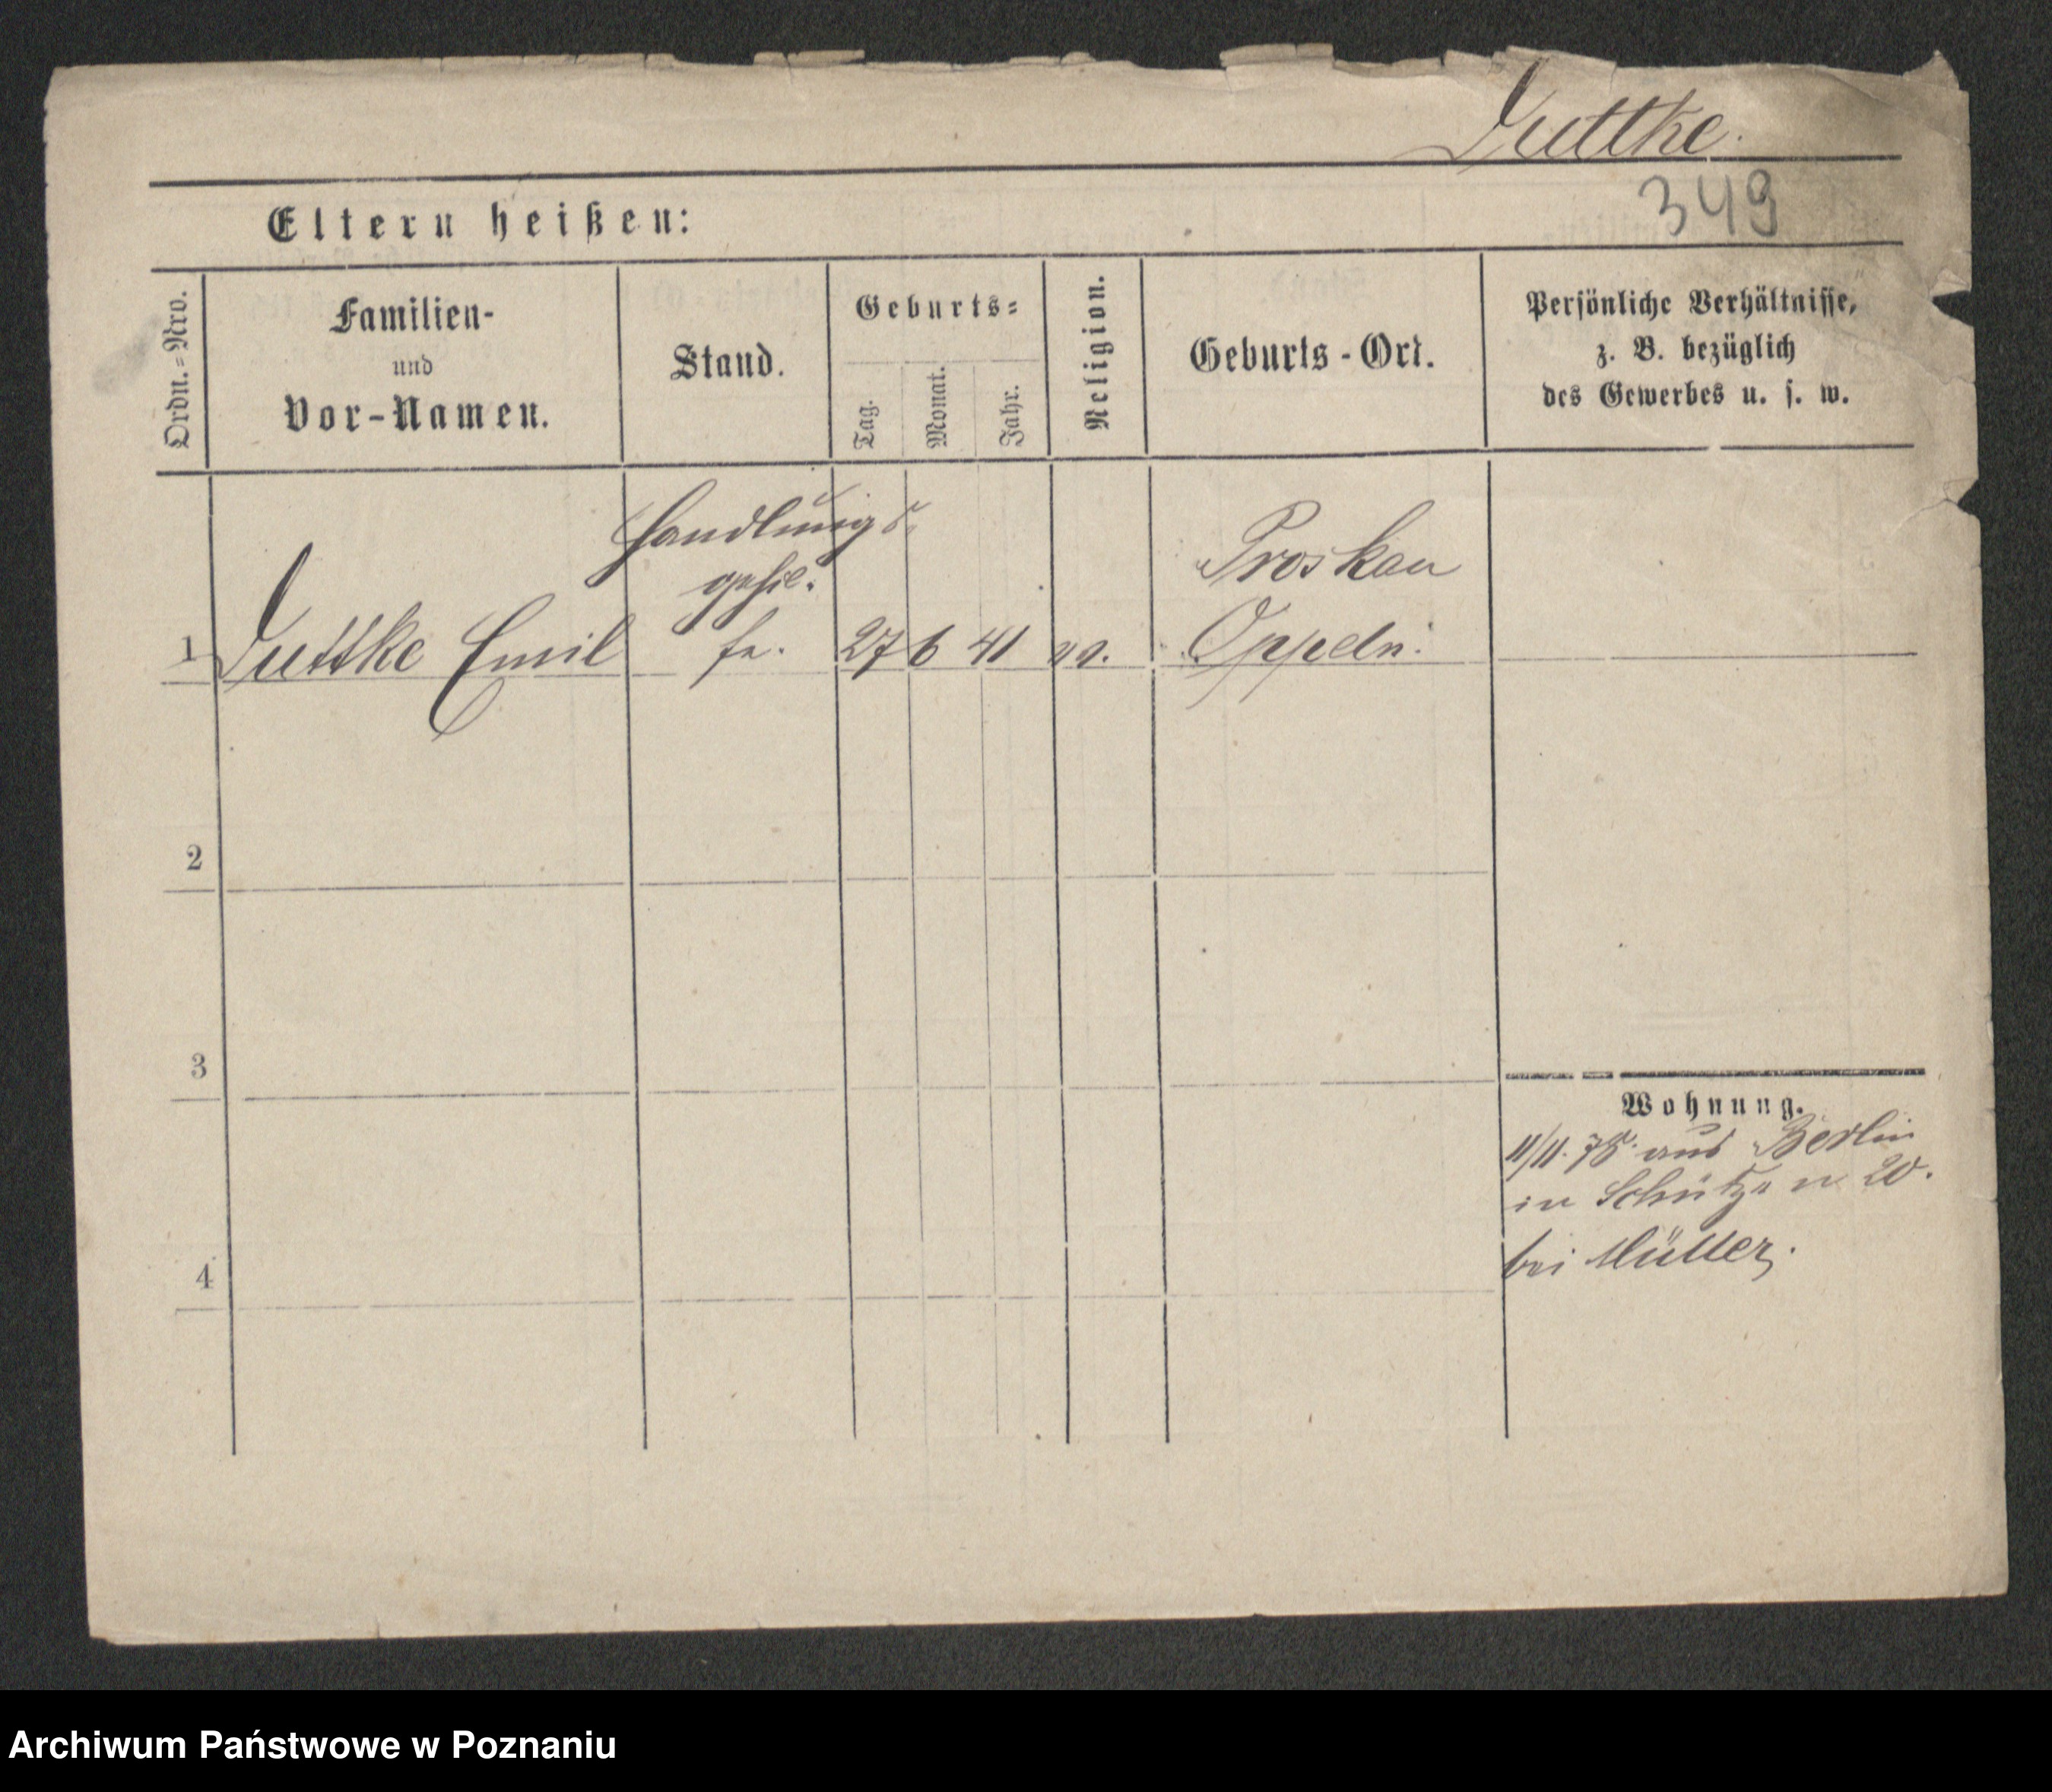 Luttke.
349
Eltern heißen:
Ordn.=Nro.
Familien-
und
Vor-Namen.
Stand.
Geburts=
Tag.
Monat.
Jahr.
Religion.
Geburts-Ort.
Persönliche Verhältnisse,
z. B. bezüglich
des Gewerbes u. s. w.
Handlungs
gehil.
fe.
1 Luttke Emil
27 6 41
Proskau
Oppeln.
2
3
4
Wohnung.
11/11. 78. aus Berlin
in Schützen 20.
bei Müller.
Archiwum Państwowe w Poznaniu